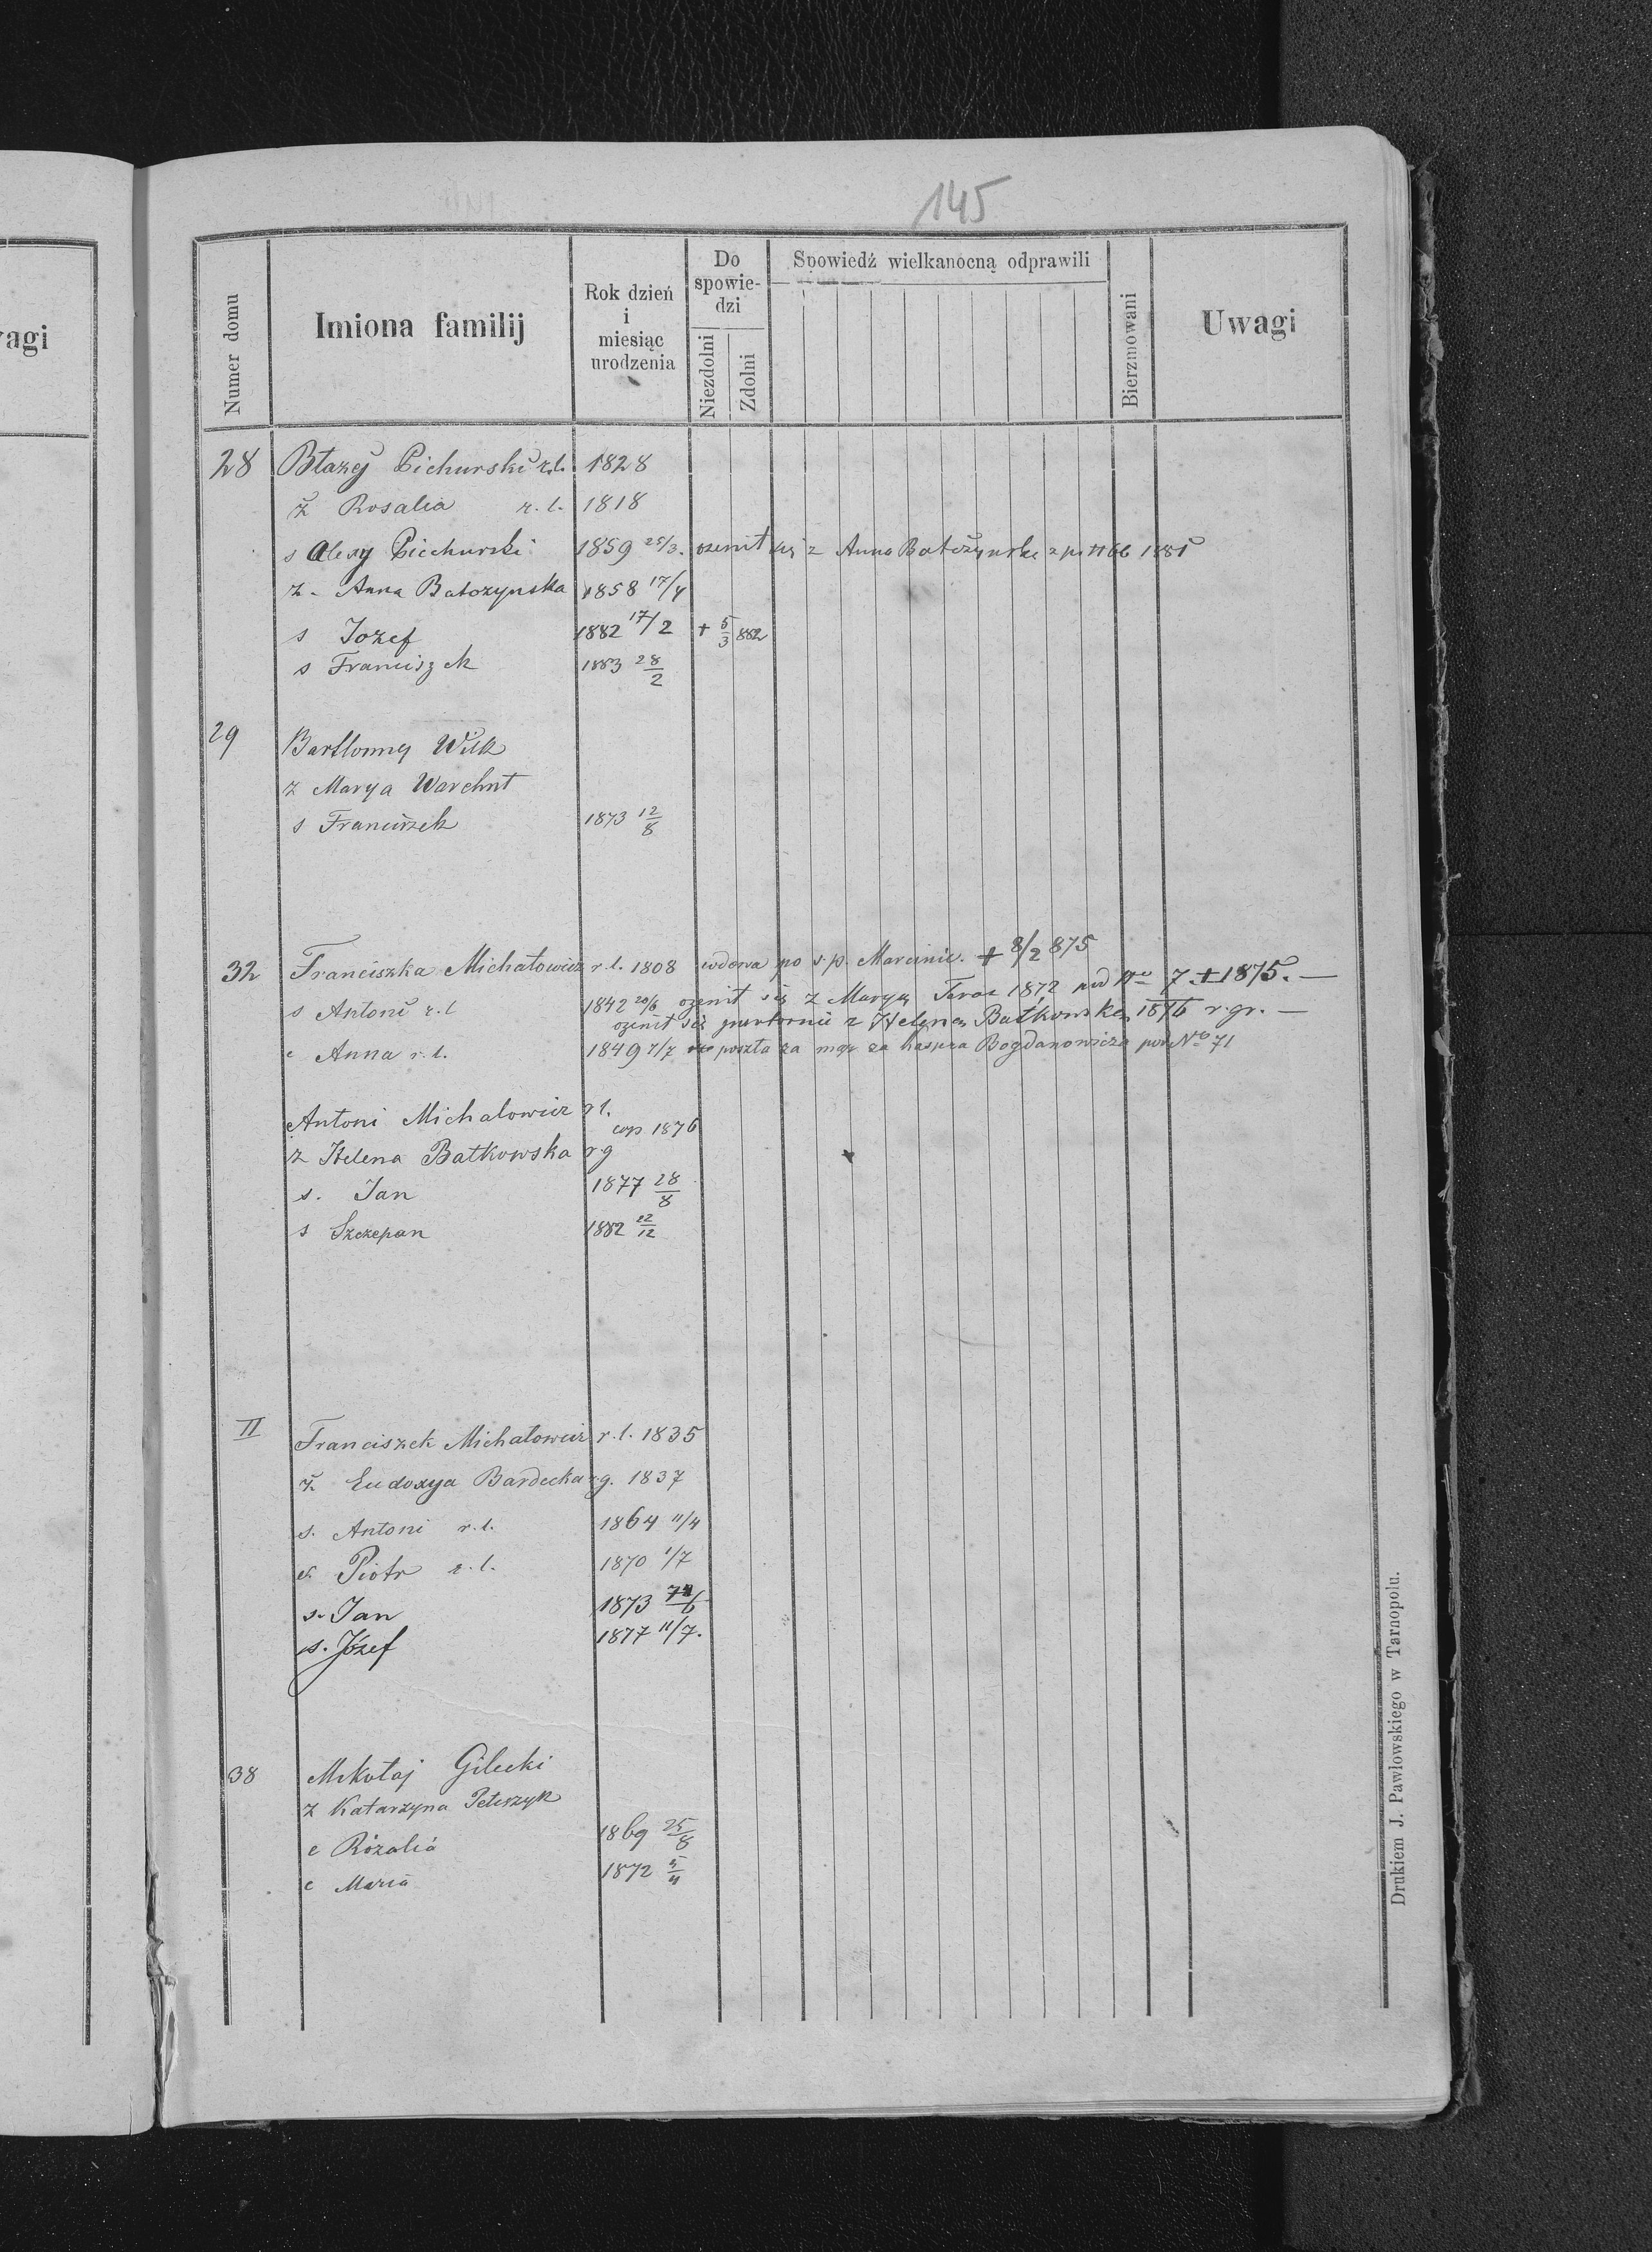 145
agi
Numer domu
Imiona familij
Rok dzień i miesiąc urodzenia
Do spowie-dzi
Niezdolni
Zdolni
Spowiedź wielkanocną odprawili
Bierzmowani
Uwagi
28 Błażej Cichurski r.l. 1828
ż Rosalia r.l. 1818
s Alexy Ciechurski 1859 25/3. ozenił się z Anna Batożynska 1881
z. Anna Batozynska 1858 17/4
s Jozef 1882 17/2 + 5/3 882
s Franciszek 1883 28/2
29 Bartłomiy Wilk
z Marya Warchoł
s Franciszek 1873 12/8
32 Franciszka Michałowicz r.l. 1808 wdowa po s.p. Marcinie. + 8/2 875
s Antoni r.l 1842 20/6 ozenił się z Maryą Taraz 1872 pod Nro 7. + 1875. —
ozenił się powtornie z Heleną Batkowską 1876 r.gr. —
c Anna r.l. 1849 7/7 poszła za mąż za Kaspra Bogdanowicza pod No 71
Antoni Michalowicz r l.
cop 1876
z Helena Batkowska r g
s. Jan 1877 28/8
s Szczepan 1882 22/12
II Franciszek Michałowicz r.l. 1835
ż. Eudoxya Bardecka r.g. 1837
s. Antoni r.l. 1864 11/4
s. Piotr r.l. 1870 1/7
s. Jan 1873
s. Józef 1877 11/7.
38 Mikołaj Gilecki
z Katarzyna Peterzyk
c Rózalia 1869 25/8
c Maria 1872
Drukiem J. Pawłowskiego w Tarnopolu.